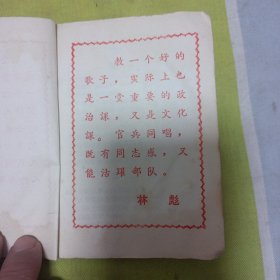 教一个好的
歌子，实际上也
是一堂重要的政
治課，又是文化
課。官兵同唱，
既有同志感，又
能活躍部队。
林 彪